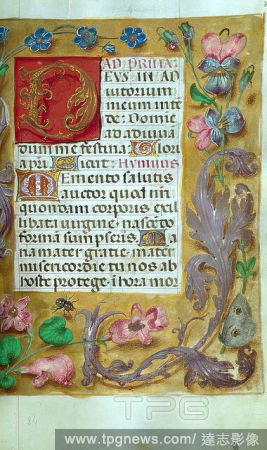 AD PRIMA
EUS IN AD
iutorium
meum inte
de: Domine
ad adiuva
dum me festina Glori
a pri Sicut: Hymnus
Memento salutis
auctor quod nri
quondam corporis ex il
libata virgine nascedo
formā sumpseris Ma
ria mater gratie mater
misericordie tu nos ab
hoste protege i hora mor
84
TPG
www.tpgnews.com / 達志影像